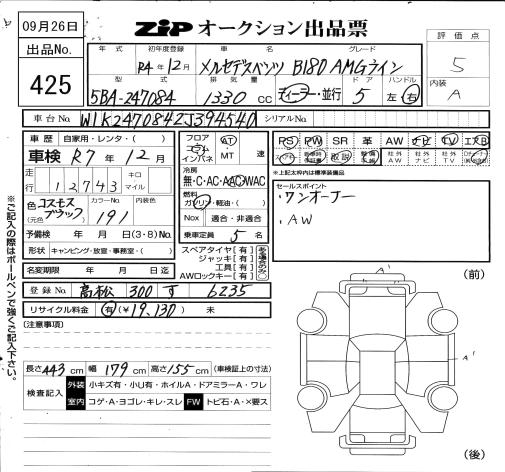 09月26日
出品No.
425
ZIP オークション出品票
評価点
5
内装
A
年式 初年度登録 車名 グレード
R4年12月 メルセデスベンツ B180 AMGライン
型式 排気量 ドア ハンドル
5BA-247084 1330 cc ディーラー・並行 5 左・右
車台No. W1K2470842J394540 シリアルNo.
車歴 自家用・レンタ・( )
車検 R7年12月
走行 12743 キロ マイル
色 コスモスブラック (元色) カラーNo. 191 内装色
予備検 年 月 日(3・8)No.
形状 キャンピング・放宣・事務室・( )
名変期限 年 月 日迄
フロア コラム インパネ AT MT 速
冷房
無・C・AC・AAC・WAC
燃料
ガソリン・軽油・( )
Nox 適合・非適合
乗車定員 5 名
スペアタイヤ[有]
ジャッキ[有]
工具[有]
AWロックキー[有]
ある場合のみ○
PS PW SR 革 AW ナビ TV エアB
取説 社外AW 社外ナビ 社外TV
※上記太枠内は標準装備品
セールスポイント
・ワンオーナー
・AW
登録No. 高松 300 す 6235
リサイクル料金 有(¥19,130) 未
(注意事項)
長さ443cm 幅179cm 高さ155cm (車検証上の寸法)
検査記入 外装 小キズ有・小U有・ホイルA・ドアミラーA・ワレ
室内 コゲ・A・ヨゴレ・キレ・スレ FW トビ石・A・×要ス
※ご記入の際はボールペンで強くご記入下さい。
(前)
A1
A1
(後)